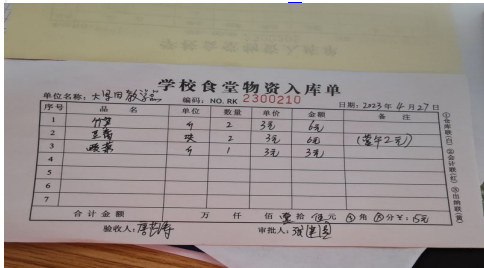 学校食堂物资入库单
单位名称：大 教学点 编码：NO.RK 2300210 日期：2023年4月27日
序号 品 名 单位 数量 单价 金额 备 注
1 竹笋 斤 2 3元 6元
2 豆腐 块 2 3元 6元
3 斤 1 3元 3元
4
5
6
7
合计金额 万 仟 佰 壹 拾 伍 元 角 分 ¥：15元
验收人： 审批人：
①仓库联(白) ②会计联(红) ③出纳联(黄)